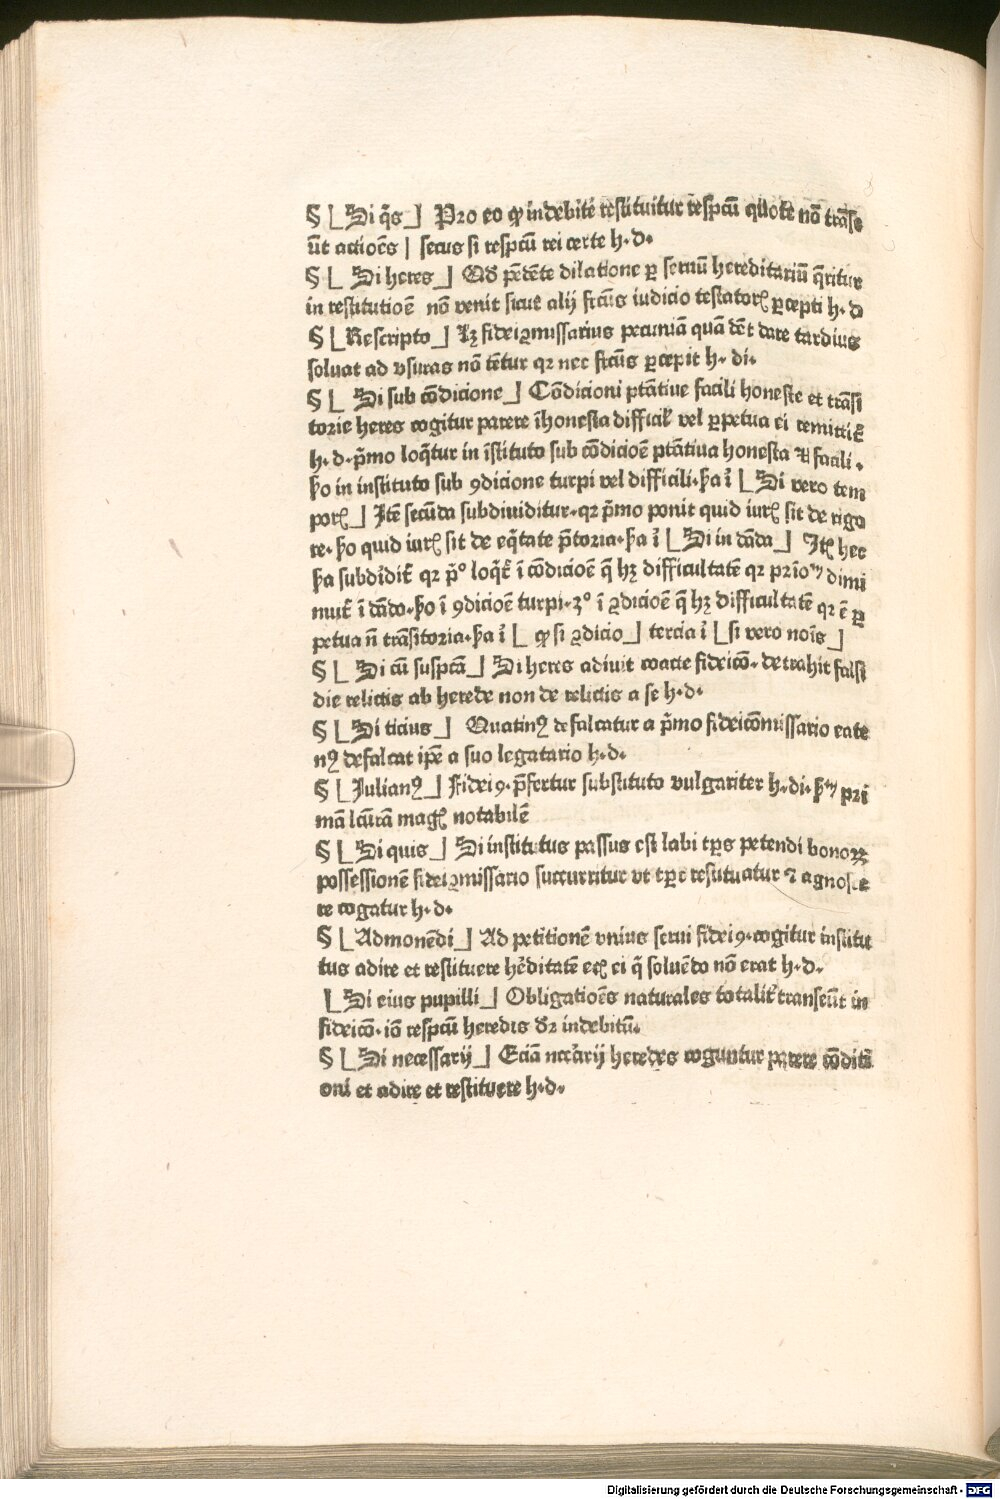 § [Si q̄s] Pro eo ꝙ indebite restituitur respc̄u quote nō trāse
ūt actiōes | secus si respc̄u rei certe h·d·
§ [Si heres] Qd̛ pēdēte dilatione ꝑ seruū hereditariū q̄ritur
in restitutiōe nō venit sicut alij frc̄us iudicio testatorꝭ ꝑcepti h·d
§ [Rescripto] Lꝫ fideiꝯmissarius pecuniā quā dꝫt dare tardius
soluat ad vsuras nō tētur qr nec frc̄us ꝑcepit h·di·
§ [Si sub cōdicione] Cōdicioni ptātiue facili honeste et trāsi
torie heres cogitur parere īhonesta difficil̛ vel ꝑpetua ei remittit̛
h·d·p̄mo loq̄tur in īstituto sub cōdiciōe ptātiua honesta ⁊ facili·
ẜo in instituto sub ꝯdicione turpi vel difficili·ẜa ī [Si vero tem
porꝭ] Itē secūda subdiuiditur·qr p̄mo ponit quid iurꝭ sit de rigo
re·ẜo quid iurꝭ sit de eq̄tate p̄toria·ẜa ī [Si in dāda] Itꝭ hec
ẜa subdīdit̛ qr p̄º loq̄t̛ ī cōdiciōe q̄ hꝫ difficultatē qr prīo dimi
nuit̛ ī dādo·ẜo ī ꝯdiciōe turpi·3º ī ꝯdiciōe q̄ hꝫ difficultatē qr ē ꝑ
petua n̄ trāsitoria·ẜa ī [ꝙ si ꝯdicio] tercia ī [si vero noīs]
§ [Si cū suspc̄ā] Si heres adiuit coacte fideicō·detrahit falsi
die relictis ab herede non de relictis a se h·d·
§ [Si ticius] Quatinꝰ defalcatur a p̄mo fideicōmissario eate
nꝰ defalcat ipē a suo legatario h·d·
§ [Julianꝰ] Fideiꝯ·p̄fertur substituto vulgariter h·di·ẜm pri
mā lc̄urā magꝭ notabilē
§ [Si quis] Si institutus passus est labi tp̄s petendi bonoꝝ
possessionē fideiꝯmissario succurritur vt tꝑe restituatur ⁊ agnosce
re cogatur h·d·
§ [Admonēdi] Ad petitionē vnius serui fideiꝯ·cogitur institu
tus adire et restituere hēditatē etꝭ ei q̄ soluēdo nō erat h·d·
[Si eius pupilli] Obligatiōes naturales totalit̛ transeūt in
fideicō·iō respc̄u heredis dr̄ indebitū·
§ [Si necessarij] Eciā nccārij heredes coguntur parere cōditi
oni et adire et restituere h·d·
Digitalisierung gefördert durch die Deutsche Forschungsgemeinschaft - DFG